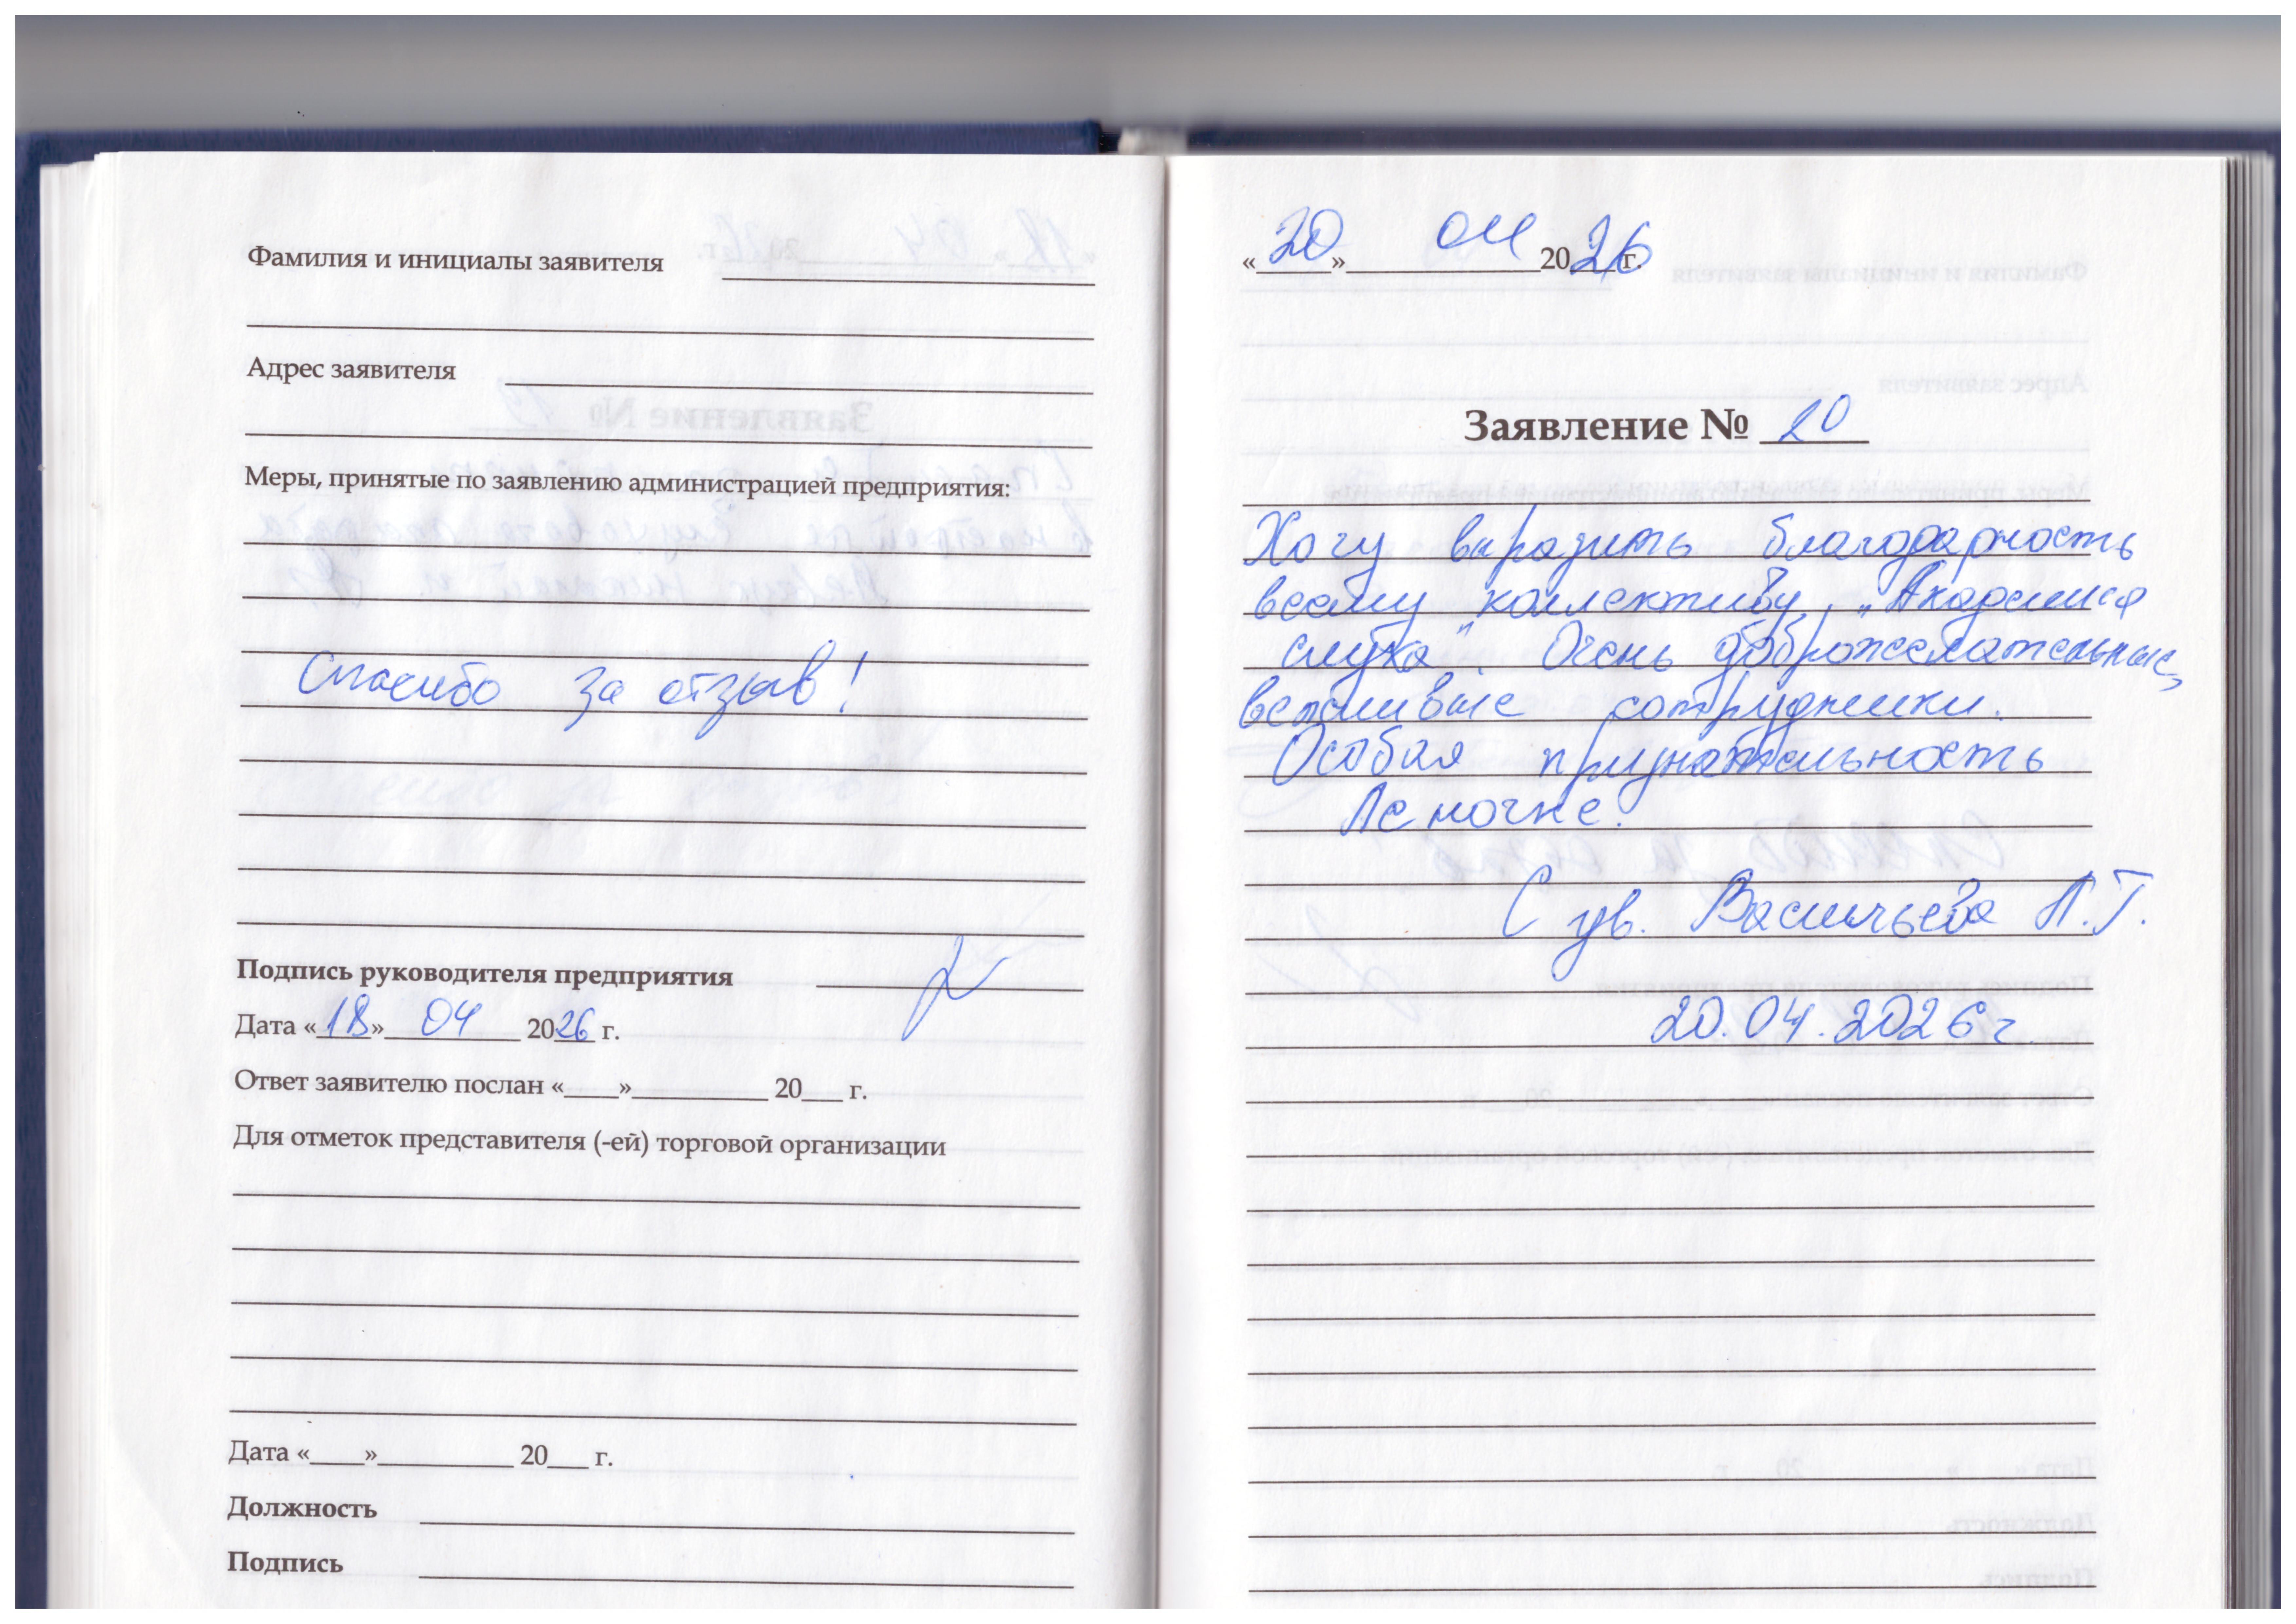 Фамилия и инициалы заявителя
Адрес заявителя
Меры, принятые по заявлению администрацией предприятия:
Спасибо за отзыв!
Подпись руководителя предприятия
Дата «18» 04 2026 г.
Ответ заявителю послан «____»__________ 20___ г.
Для отметок представителя (-ей) торговой организации
Дата «____»__________ 20___ г.
Должность
Подпись
«20» 04 2026 г.
Заявление № 20
Хочу выразить благодарность
всему коллективу „Академия
слуха". Очень доброжелательные,
вежливые сотрудники.
Особая признательность
Леночке.
С ув. Васильева Л.Г.
20.04.2026 г.